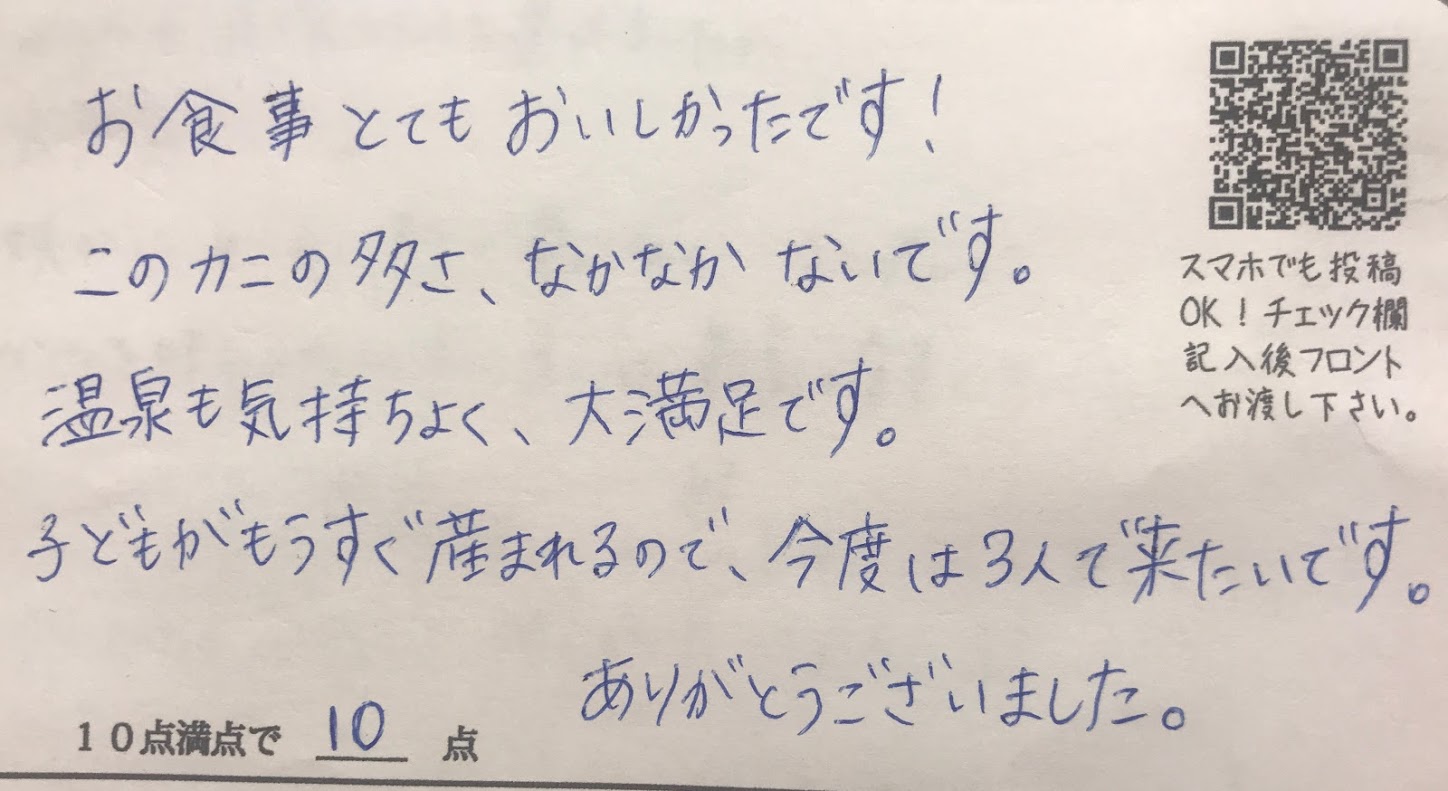 お食事とてもおいしかったです！
このカニの多さ、なかなかないです。
温泉も気持ちよく、大満足です。
子どもがもうすぐ産まれるので、今度は3人で来たいです。
ありがとうございました。
10点満点で 10 点
スマホでも投稿
OK！チェック欄
記入後フロント
へお渡し下さい。